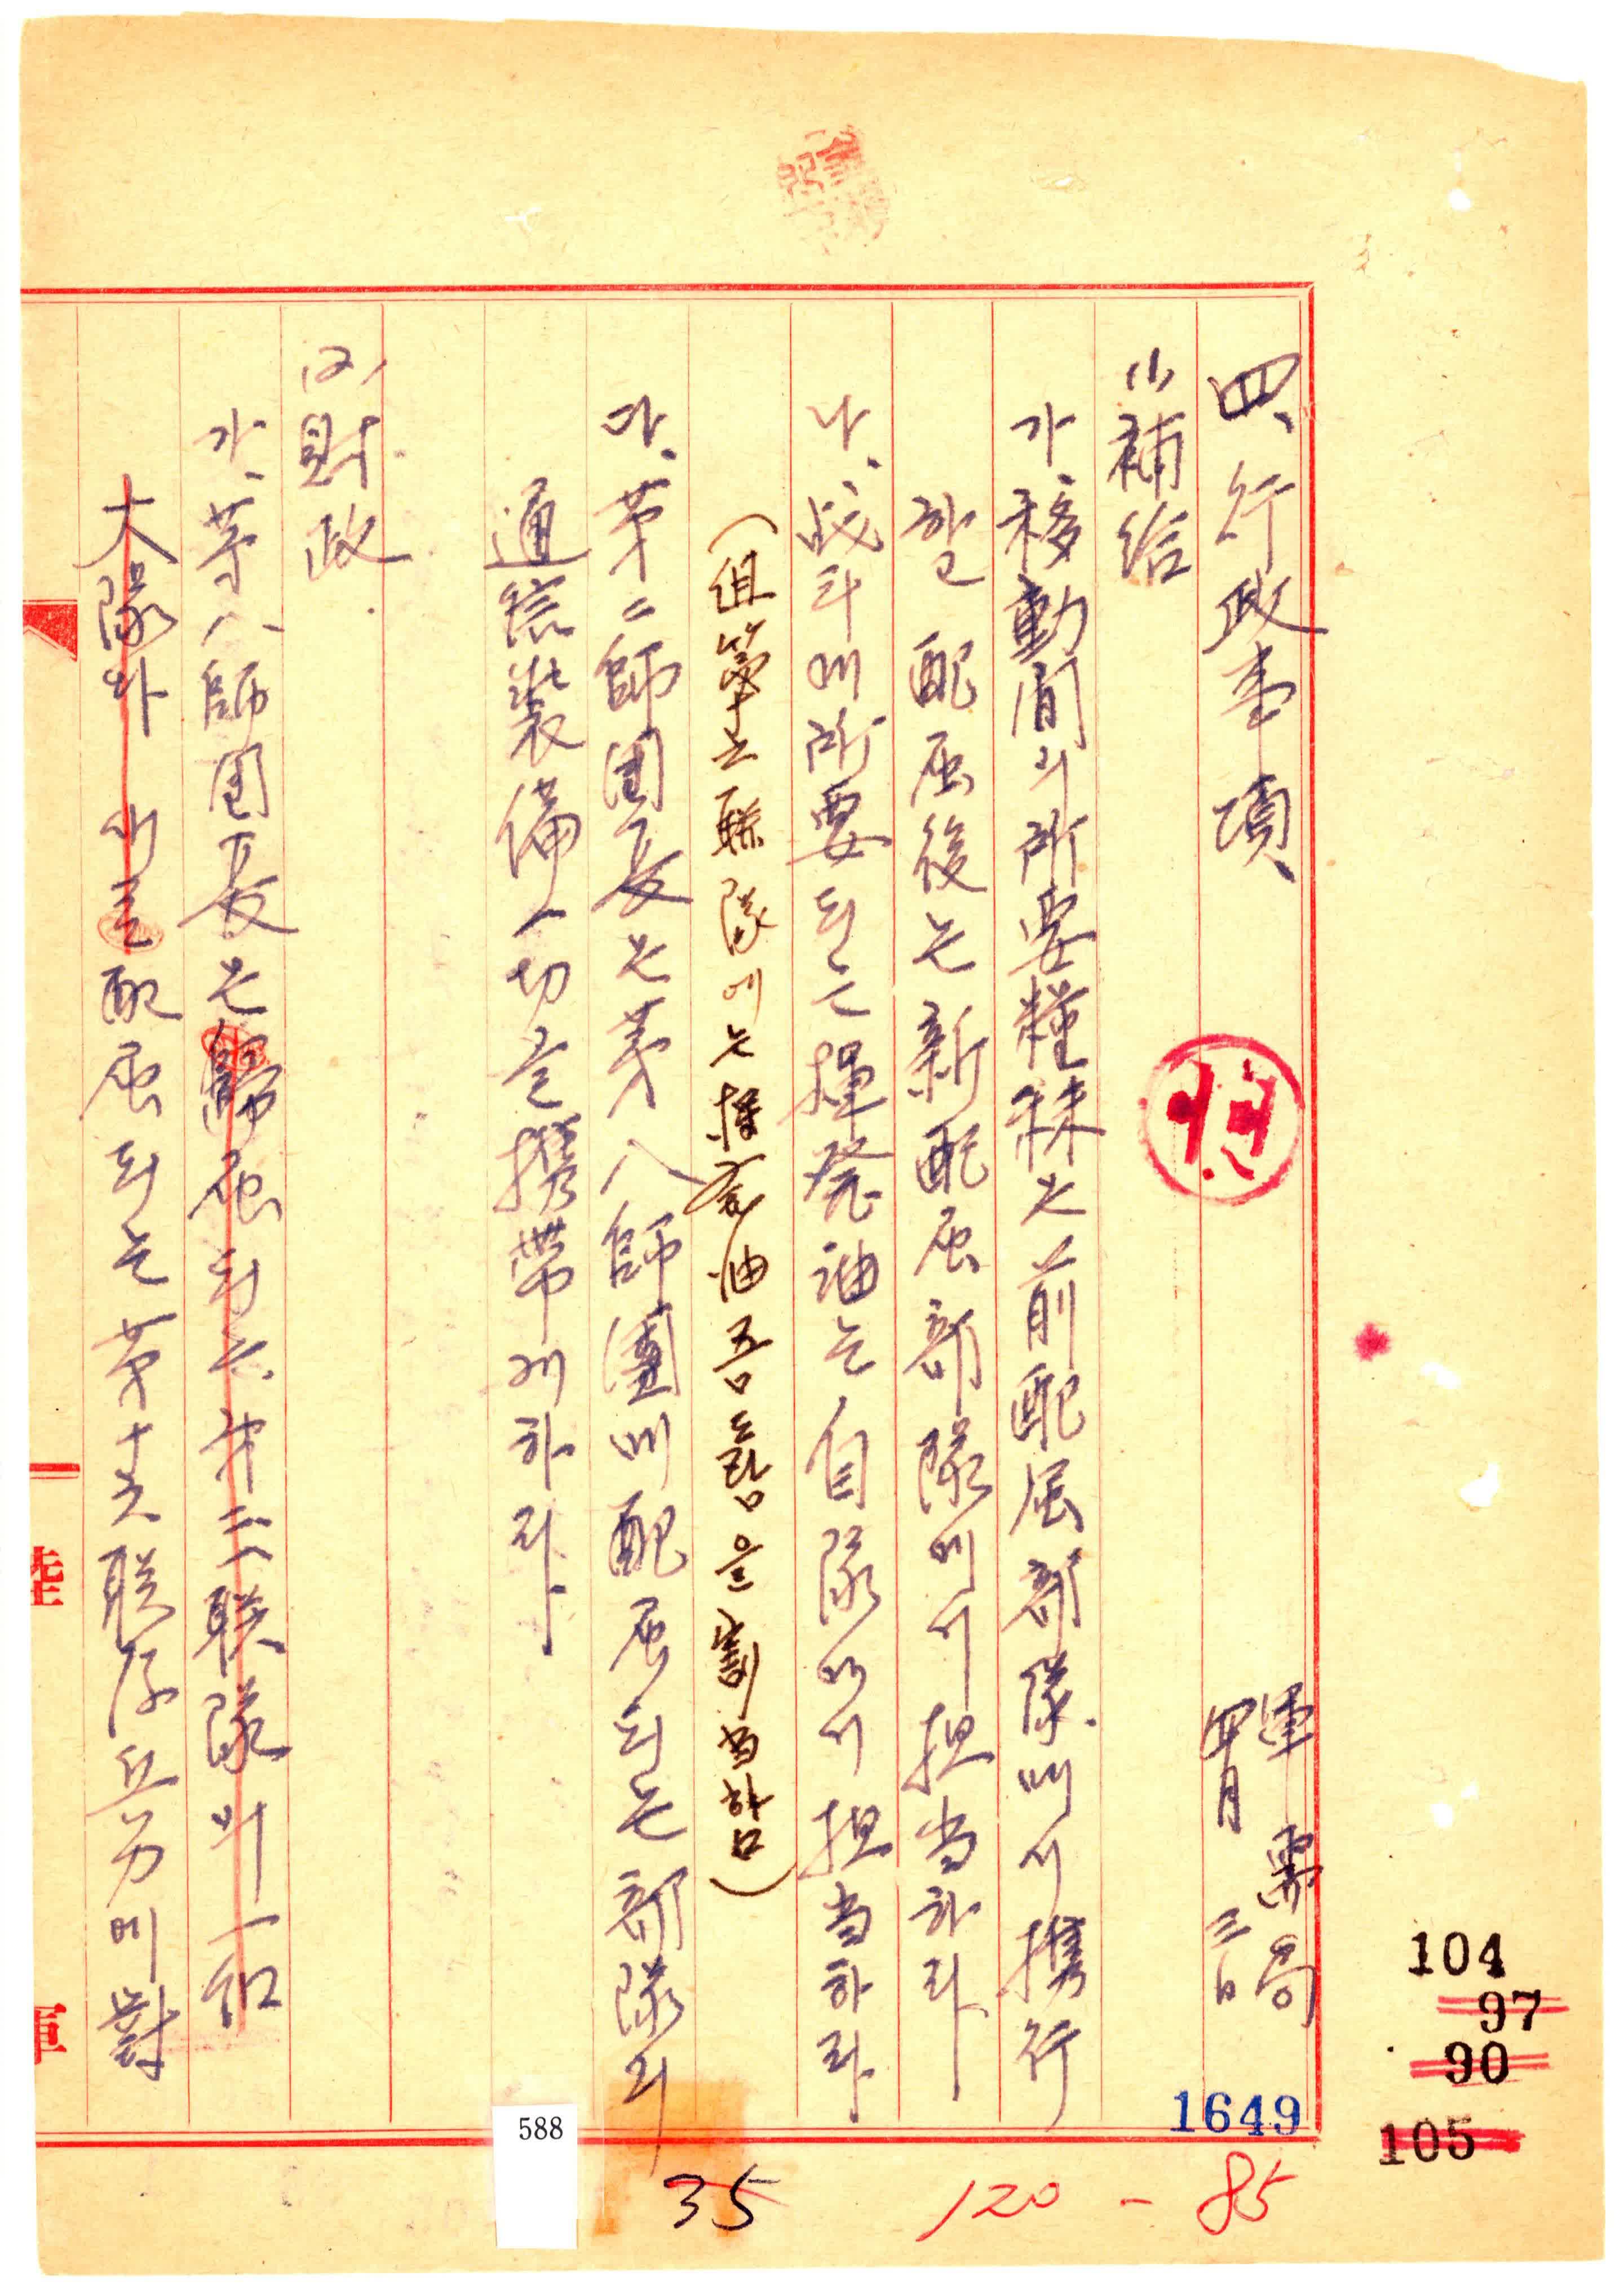 四、行政事項、
軍需局
四月三日
(1)補給
가、移動間의 所要糧秣은 前配屈部隊에서 携行
하고 配屈後는 新配屈部隊에서 担当하라
나、战斗에 所要되는 揮発油는 自隊에서 担当하라
(但 第 联隊에는 揮発油 五드람을 割当함)
라、第二師団長은 第八師團에 配屈되는 部隊의
通信装備一切를 携帶케하라
(2)財政
가、第八師団長은 歸屈되는 第 联隊의 一和
大隊와 配屈되는 第十 联隊 兵力에 對
陸
軍
1649
104
97
90
105
588
35
120 - 85